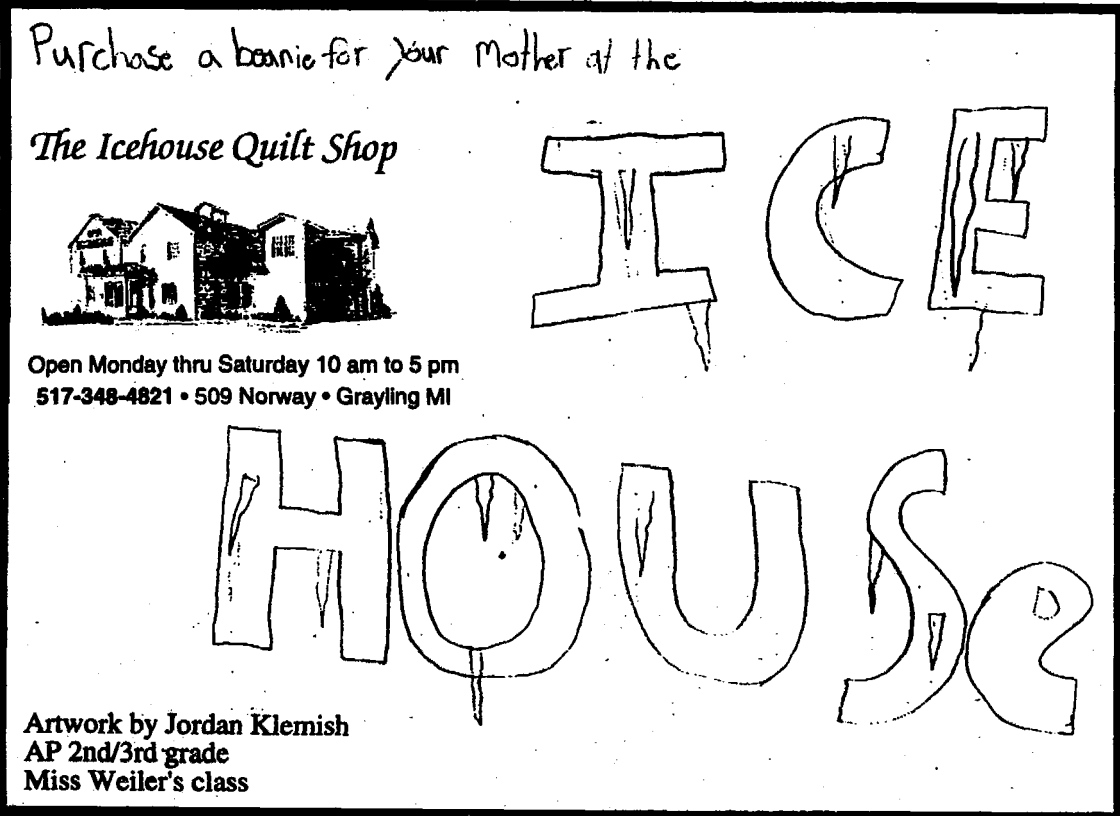 Purchase a beanie for your Mother at the
The Icehouse Quilt Shop
ICE
Open Monday thru Saturday 10 am to 5 pm
517-348-4821 • 509 Norway • Grayling MI
HOUSe
Artwork by Jordan Klemish
AP 2nd/3rd grade
Miss Weiler's class